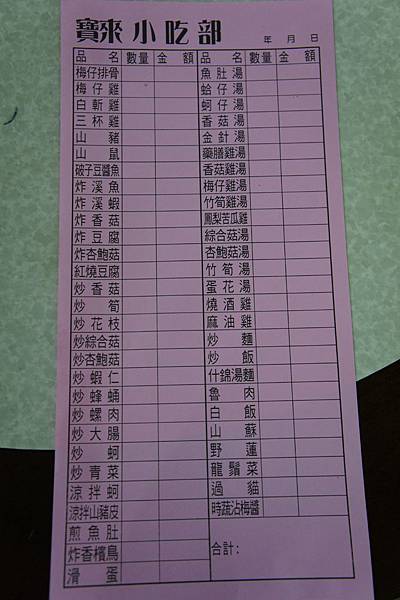 寶來小吃部 年 月 日
品名 數量 金額 品名 數量 金額
梅仔排骨 魚肚湯
梅仔雞 蛤仔湯
白斬雞 蚵仔湯
三杯雞 香菇湯
山豬 金針湯
山鼠 藥膳雞湯
破子豆醬魚 香菇雞湯
炸溪魚 梅仔雞湯
炸溪蝦 竹筍雞湯
炸香菇 鳳梨苦瓜雞
炸豆腐 綜合菇湯
炸杏鮑菇 杏鮑菇湯
紅燒豆腐 竹筍湯
炒香菇 蛋花湯
炒筍 燒酒雞
炒花枝 麻油雞
炒綜合菇 炒麵
炒杏鮑菇 炒飯
炒蝦仁 什錦湯麵
炒蜂蛹 魯肉
炒螺肉 白飯
炒大腸 山蘇
炒蚵 野蓮
炒青菜 龍鬚菜
涼拌蚵 過貓
涼拌山豬皮 時蔬沾梅醬
煎魚肚 合計:
炸香檳鳥
滑蛋